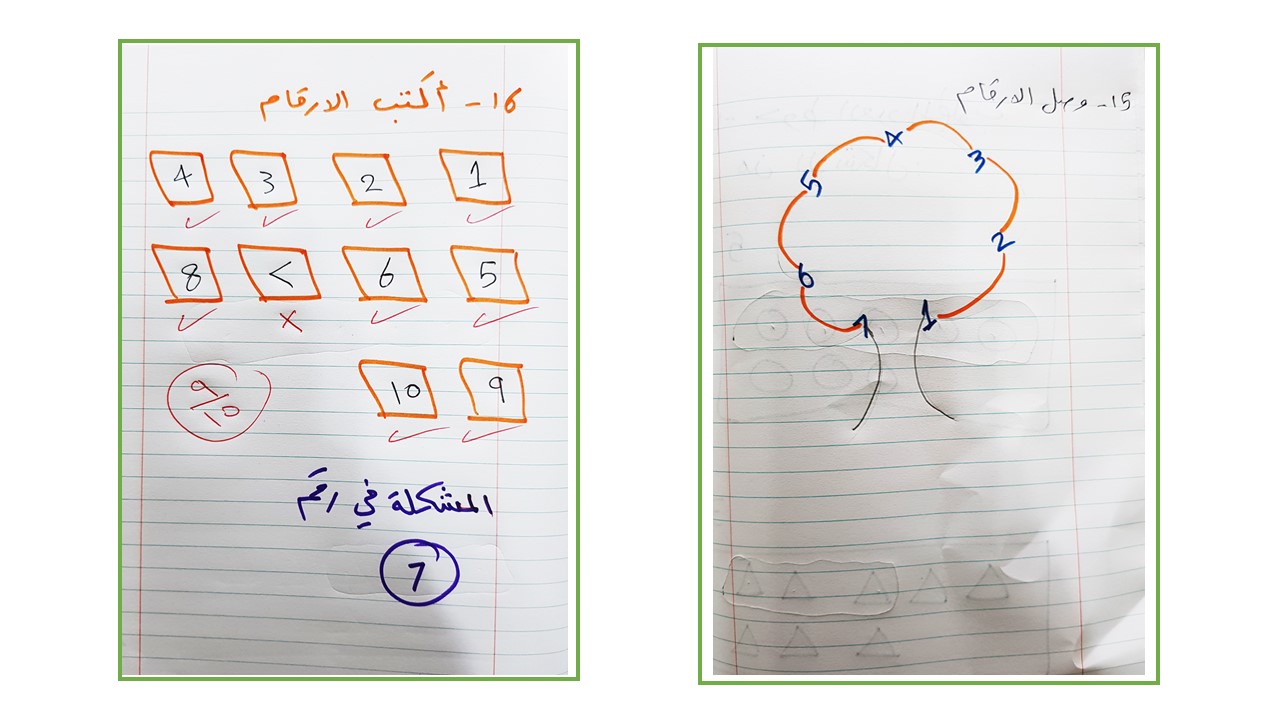 15- وصل الارقام
4
3
5
2
6
1 7
16- أكتب الارقام
1 2 3 4
5 6 < 8
9 10
9/10
المشكلة في رقم
7